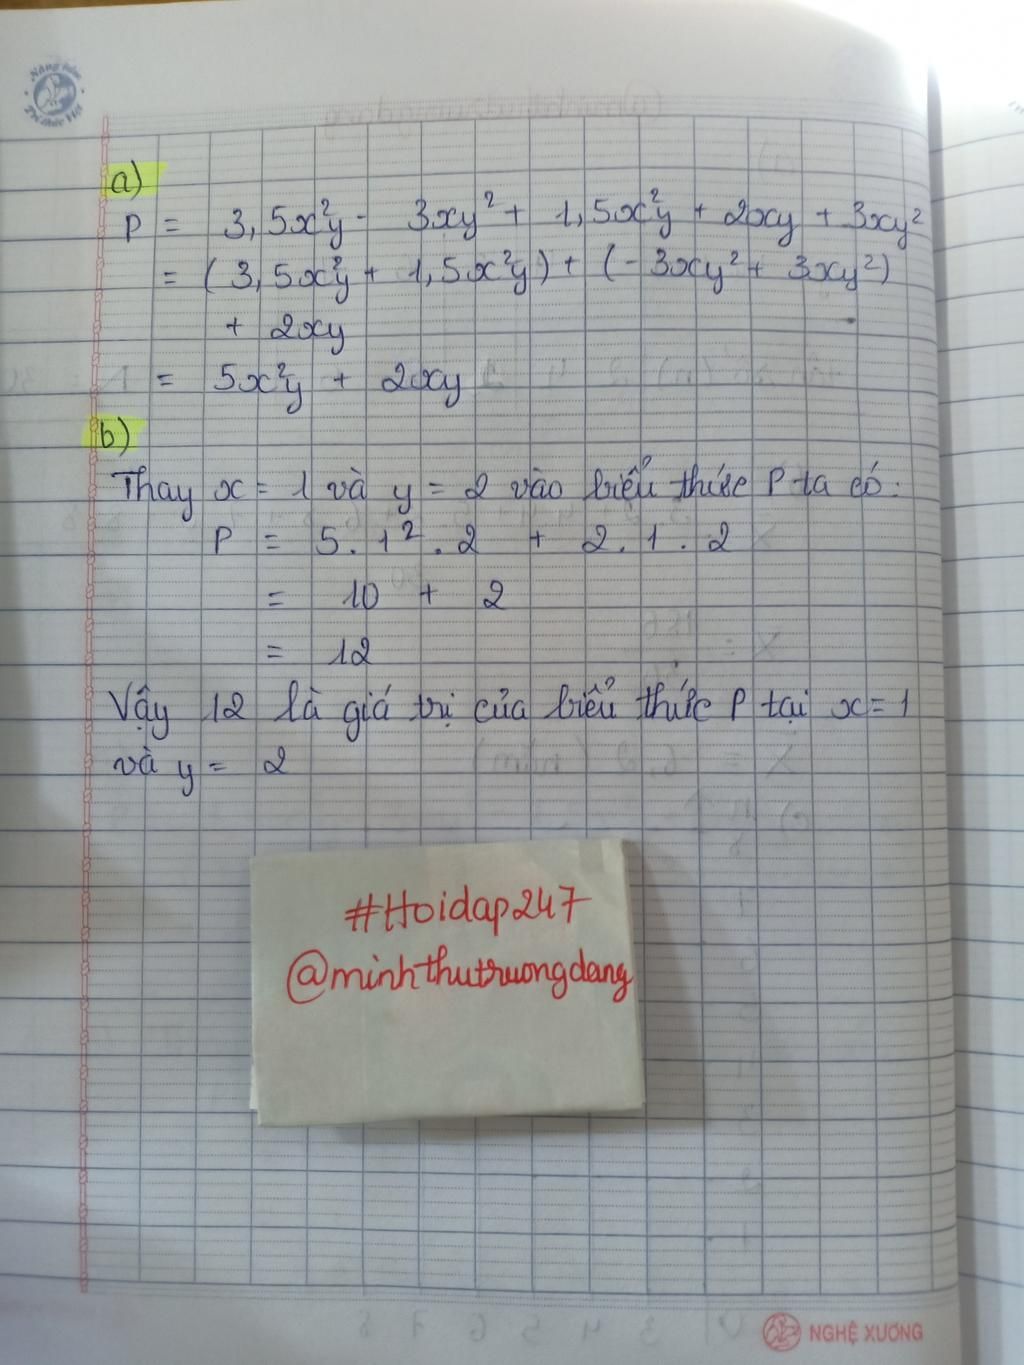 Nâng tầm
Tri thức Việt
a)
P = 3,5x²y - 3xy² + 1,5x²y + 2xy + 3xy²
= (3,5x²y + 1,5x²y) + (-3xy² + 3xy²)
+ 2xy
= 5x²y + 2xy
b)
Thay x = 1 và y = 2 vào biểu thức P ta có:
P = 5.1².2 + 2.1.2
= 10 + 2
= 12
Vậy 12 là giá trị của biểu thức P tại x = 1
và y = 2
#Hoidap247
@minhthutruongdang
NGHỆ XƯƠNG